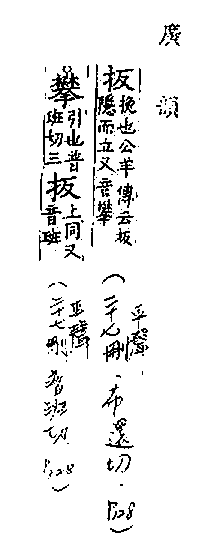 廣韻
扳挽也公羊傳云扳
隱而立又音攀
(平聲
二十七刪·布還切·P.128)
攀引也普
班切三扳上同又
音班
(平聲
二十七刪·普班切·P.128)